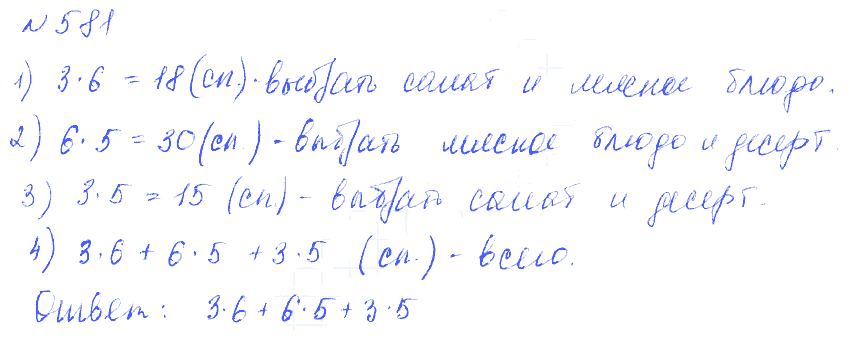 № 581
1) 3·6 = 18 (сп.) - выбрать салат и мясное блюдо.
2) 6·5 = 30 (сп.) - выбрать мясное блюдо и десерт.
3) 3·5 = 15 (сп.) - выбрать салат и десерт.
4) 3·6 + 6·5 + 3·5 (сп.) - всего.
Ответ: 3·6 + 6·5 + 3·5